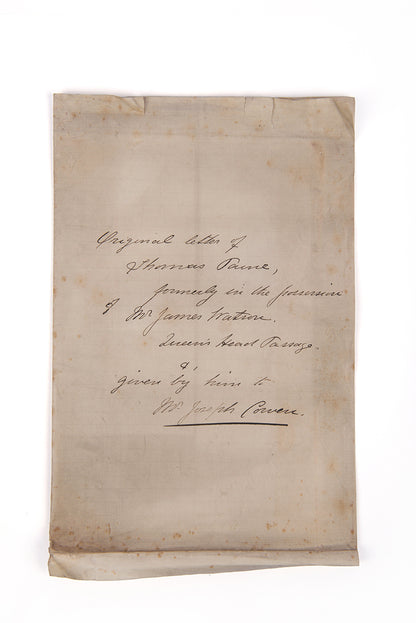 Original letter of
Thomas Paine,
formerly in the possession
of Mr James Watson.
Queen's Head Passage.
&,
given by him to
Mr. Joseph Cowen.